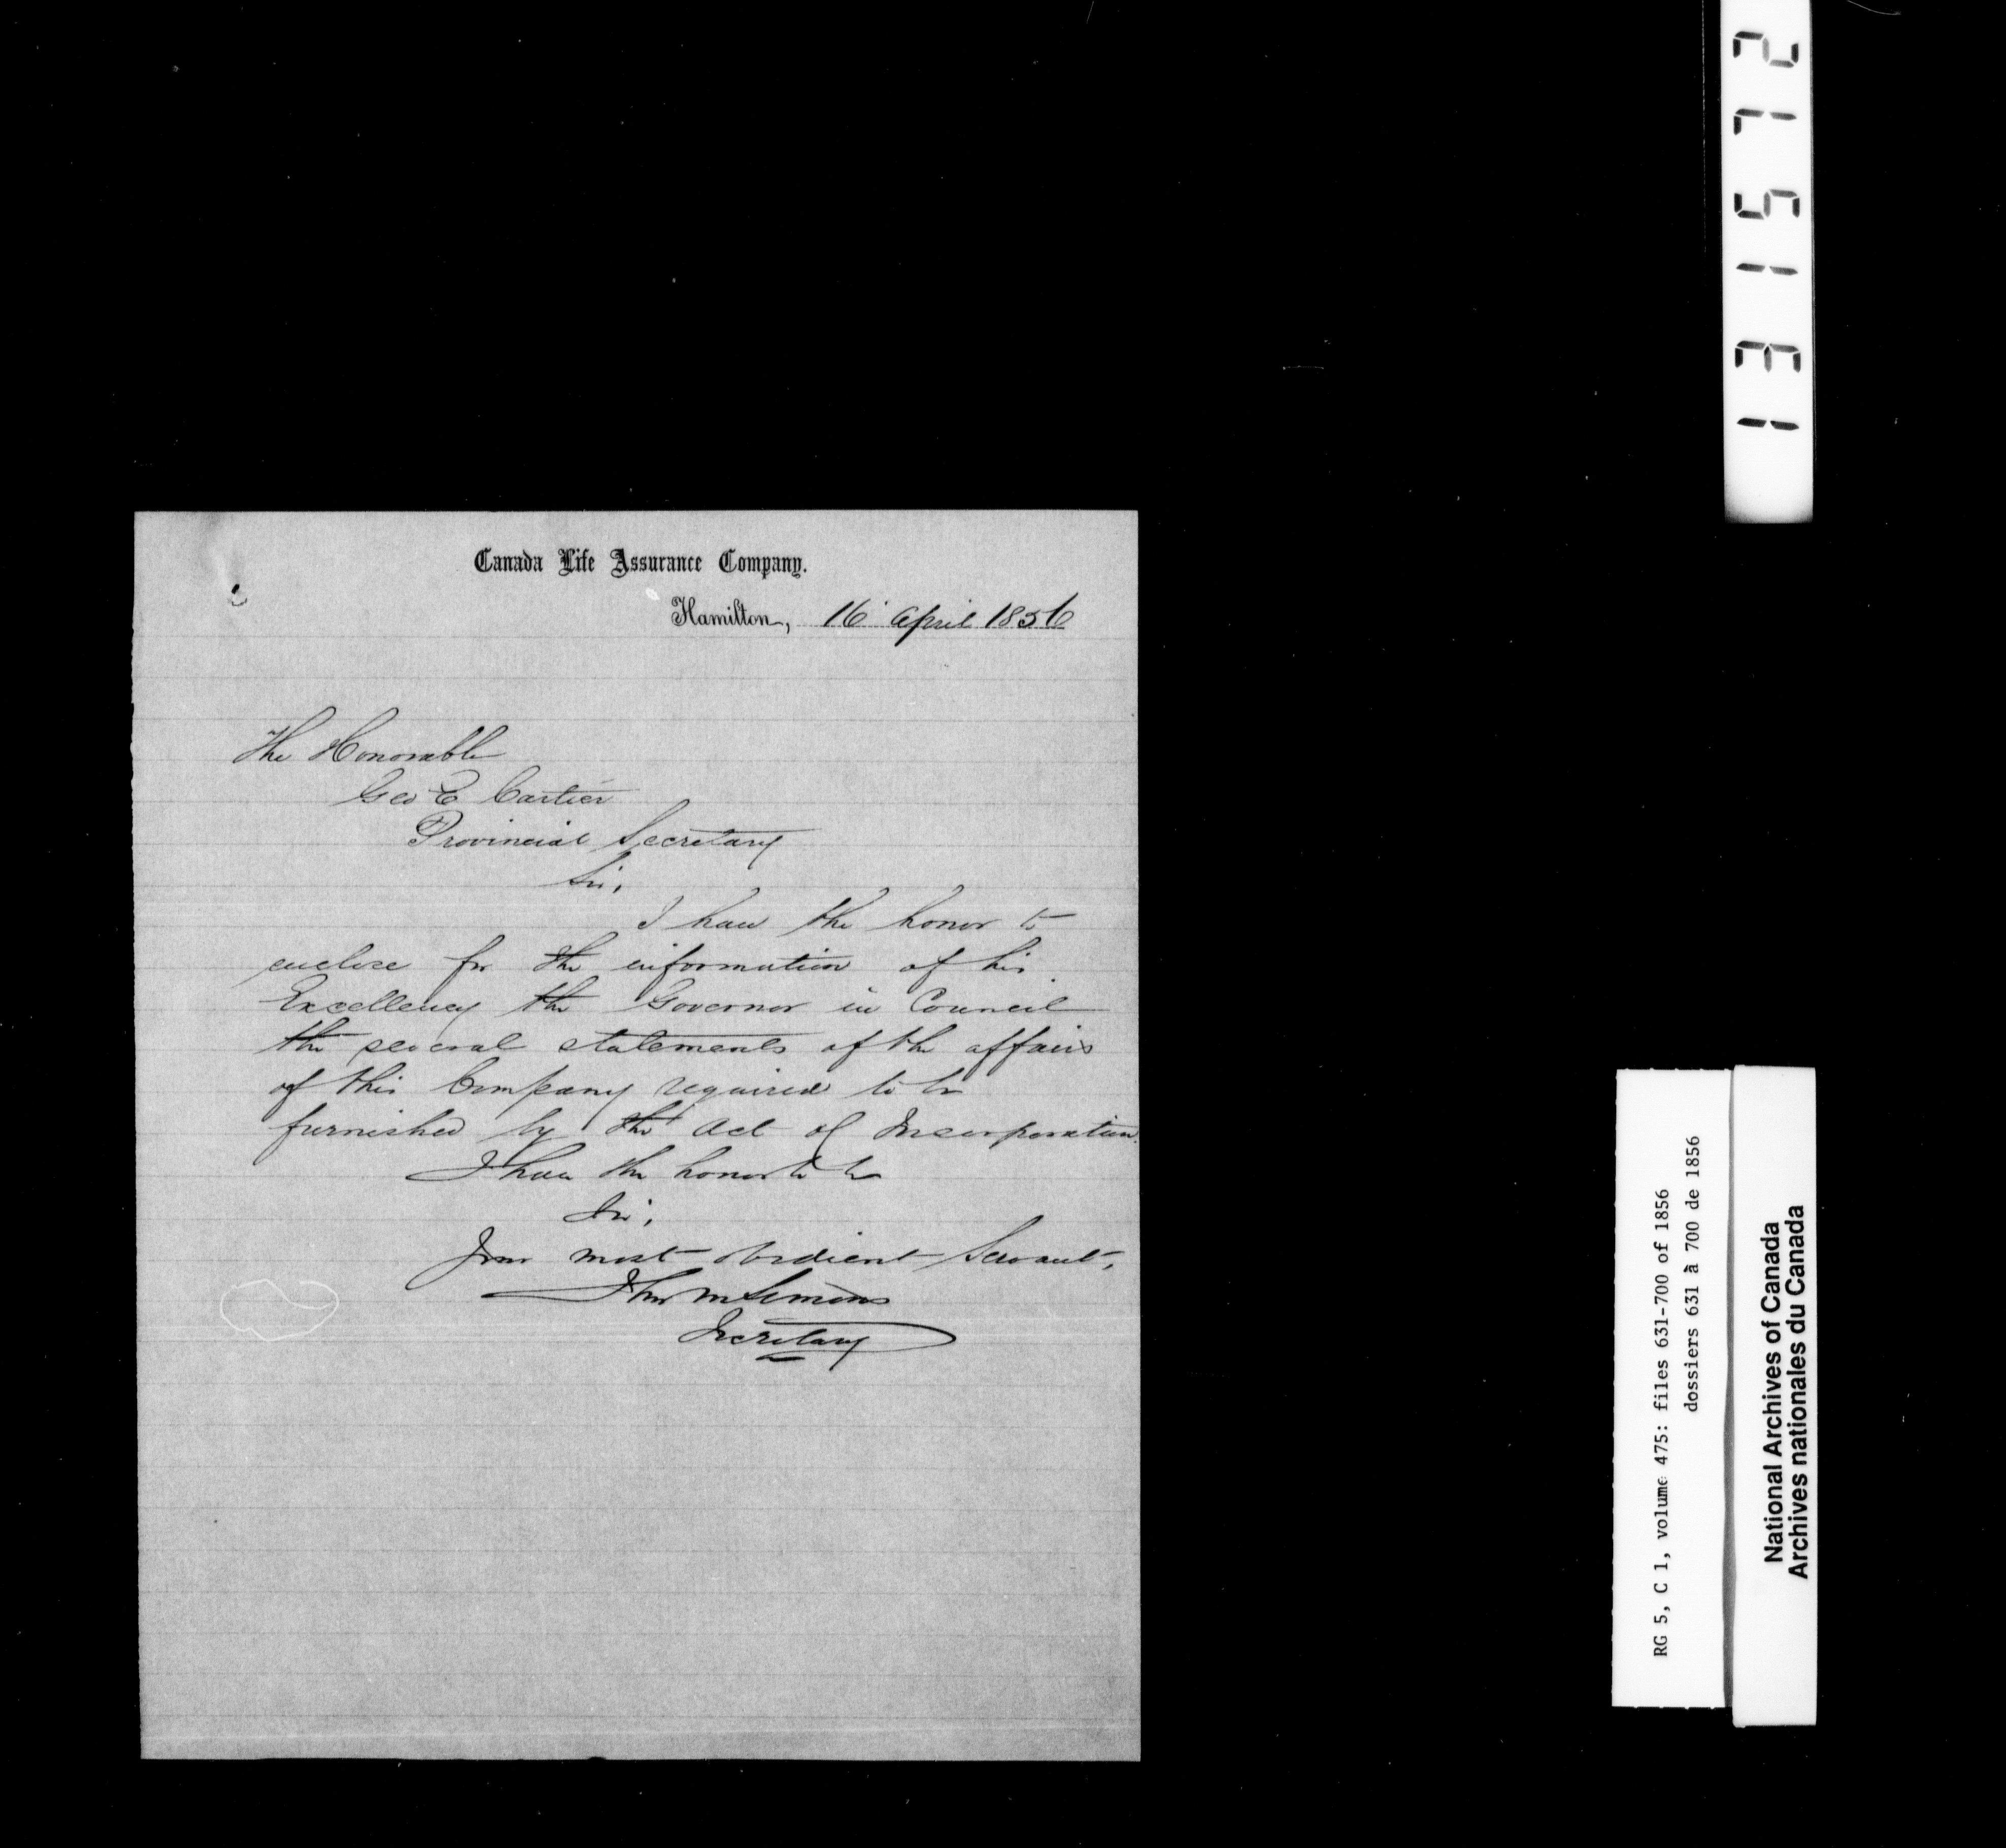 Canada Life Assurance Company.
Hamilton, 16 April 1856
The Honorable
Geo E Cartier
Provincial Secretary
Sir,
I have the honor to
enclose for the information of his
Excellency the Governor in Council
the several statements of the affairs
of this Company required to be
furnished by the Act of Incorporation.
I have the honor to be
Sir,
Your most obedient Servant,
Thos M Simons
Secretary
131572
RG 5, C 1, volume 475: files 631-700 of 1856
dossiers 631 à 700 de 1856
National Archives of Canada
Archives nationales du Canada